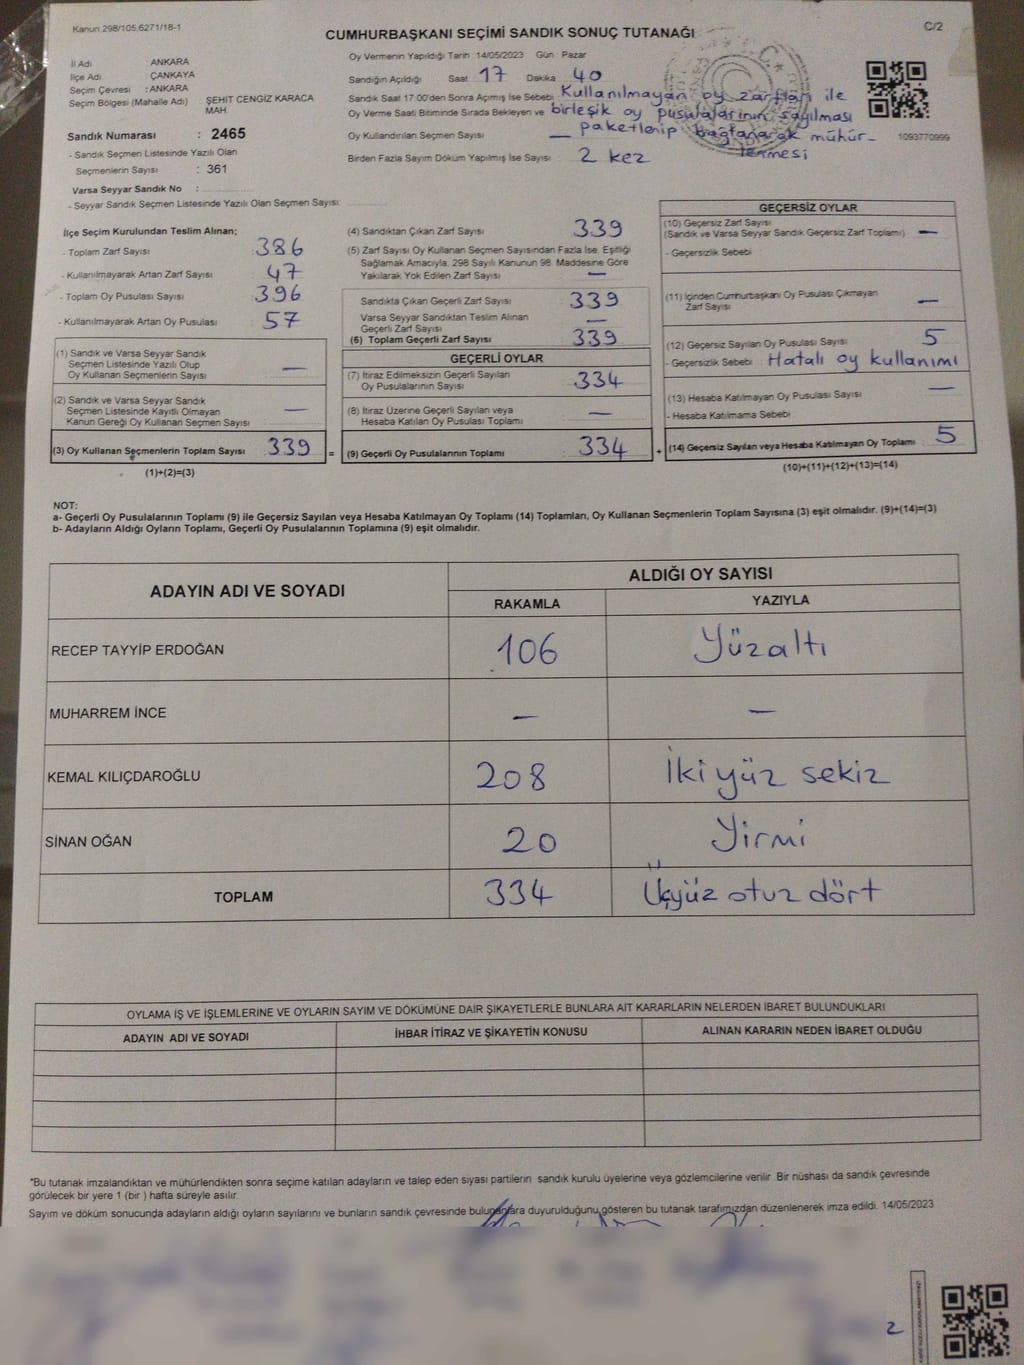 Kanun:298/105,6271/18-1
C/2
CUMHURBAŞKANI SEÇİMİ SANDIK SONUÇ TUTANAĞI
İl Adı : ANKARA
İlçe Adı : ÇANKAYA
Seçim Çevresi : ANKARA
Seçim Bölgesi (Mahalle Adı) ŞEHİT CENGİZ KARACA MAH.
Sandık Numarası : 2465
- Sandık Seçmen Listesinde Yazılı Olan
Seçmenlerin Sayısı : 361
Varsa Seyyar Sandık No :
- Seyyar Sandık Seçmen Listesinde Yazılı Olan Seçmen Sayısı:
Oy Vermenin Yapıldığı Tarih :14/05/2023 Gün : Pazar
Sandığın Açıldığı Saat 17 Dakika 40
Sandık Saat 17:00'den Sonra Açımış İse Sebebi Kullanılmayan oy zarfları ile
Oy Verme Saati Bitiminde Sırada Bekleyen ve birleşik oy pusulalarının sayılması
Oy Kullandırılan Seçmen Sayısı — paketlenip bağlanarak mühür-
lenmesi
Birden Fazla Sayım Döküm Yapılmış İse Sayısı 2 kez
1093770999
İlçe Seçim Kurulundan Teslim Alınan;
- Toplam Zarf Sayısı 386
- Kullanılmayarak Artan Zarf Sayısı 47
- Toplam Oy Pusulası Sayısı 396
- Kullanılmayarak Artan Oy Pusulası 57
(1) Sandık ve Varsa Seyyar Sandık
Seçmen Listesinde Yazılı Olup
Oy Kullanan Seçmenlerin Sayısı —
(2) Sandık ve Varsa Seyyar Sandık
Seçmen Listesinde Kayıtlı Olmayan
Kanun Gereği Oy Kullanan Seçmen Sayısı —
(3) Oy Kullanan Seçmenlerin Toplam Sayısı 339 =
(1)+(2)=(3)
(4) Sandıktan Çıkan Zarf Sayısı 339
(5) Zarf Sayısı Oy Kullanan Seçmen Sayısından Fazla İse, Eşitliği
Sağlamak Amacıyla, 298 Sayılı Kanunun 98. Maddesine Göre
Yakılarak Yok Edilen Zarf Sayısı —
Sandıkta Çıkan Geçerli Zarf Sayısı 339
Varsa Seyyar Sandıktan Teslim Alınan
Geçerli Zarf Sayısı —
(6) Toplam Geçerli Zarf Sayısı 339
GEÇERLİ OYLAR
(7) İtiraz Edilmeksizin Geçerli Sayılan
Oy Pusulalarının Sayısı 334
(8) İtiraz Üzerine Geçerli Sayılan veya
Hesaba Katılan Oy Pusulaları Toplamı —
(9) Geçerli Oy Pusulalarının Toplamı 334 +
GEÇERSİZ OYLAR
(10) Geçersiz Zarf Sayısı
(Sandık ve Varsa Seyyar Sandık Geçersiz Zarf Toplamı) —
- Geçersizlik Sebebi
(11) İçinden Cumhurbaşkanı Oy Pusulası Çıkmayan
Zarf Sayısı —
(12) Geçersiz Sayılan Oy Pusulası Sayısı 5
- Geçersizlik Sebebi Hatalı oy kullanımı
(13) Hesaba Katılmayan Oy Pusulası Sayısı —
- Hesaba Katılmama Sebebi
(14) Geçersiz Sayılan veya Hesaba Katılmayan Oy Toplamı 5
(10)+(11)+(12)+(13)=(14)
NOT:
a- Geçerli Oy Pusulalarının Toplamı (9) ile Geçersiz Sayılan veya Hesaba Katılmayan Oy Toplamı (14) Toplamları, Oy Kullanan Seçmenlerin Toplam Sayısına (3) eşit olmalıdır. (9)+(14)=(3)
b- Adayların Aldığı Oyların Toplamı, Geçerli Oy Pusulalarının Toplamına (9) eşit olmalıdır.
ADAYIN ADI VE SOYADI
ALDIĞI OY SAYISI
RAKAMLA YAZIYLA
RECEP TAYYİP ERDOĞAN 106 Yüzaltı
MUHARREM İNCE — —
KEMAL KILIÇDAROĞLU 208 İkiyüz sekiz
SİNAN OĞAN 20 Yirmi
TOPLAM 334 Üçyüz otuz dört
OYLAMA İŞ VE İŞLEMLERİNE VE OYLARIN SAYIM VE DÖKÜMÜNE DAİR ŞİKAYETLERLE BUNLARA AİT KARARLARIN NELERDEN İBARET BULUNDUKLARI
ADAYIN ADI VE SOYADI İHBAR İTİRAZ VE ŞİKAYETİN KONUSU ALINAN KARARIN NEDEN İBARET OLDUĞU
*Bu tutanak imzalandıktan ve mühürlendikten sonra seçime katılan adayların ve talep eden siyasi partilerin sandık kurulu üyelerine veya gözlemcilerine verilir. Bir nüshası da sandık çevresinde
görülecek bir yere 1 (bir ) hafta süreyle asılır.
Sayım ve döküm sonucunda adayların aldığı oyların sayılarını ve bunların sandık çevresinde bulunanlara duyurulduğunu gösteren bu tutanak tarafımızdan düzenlenerek imza edildi. 14/05/2023
2